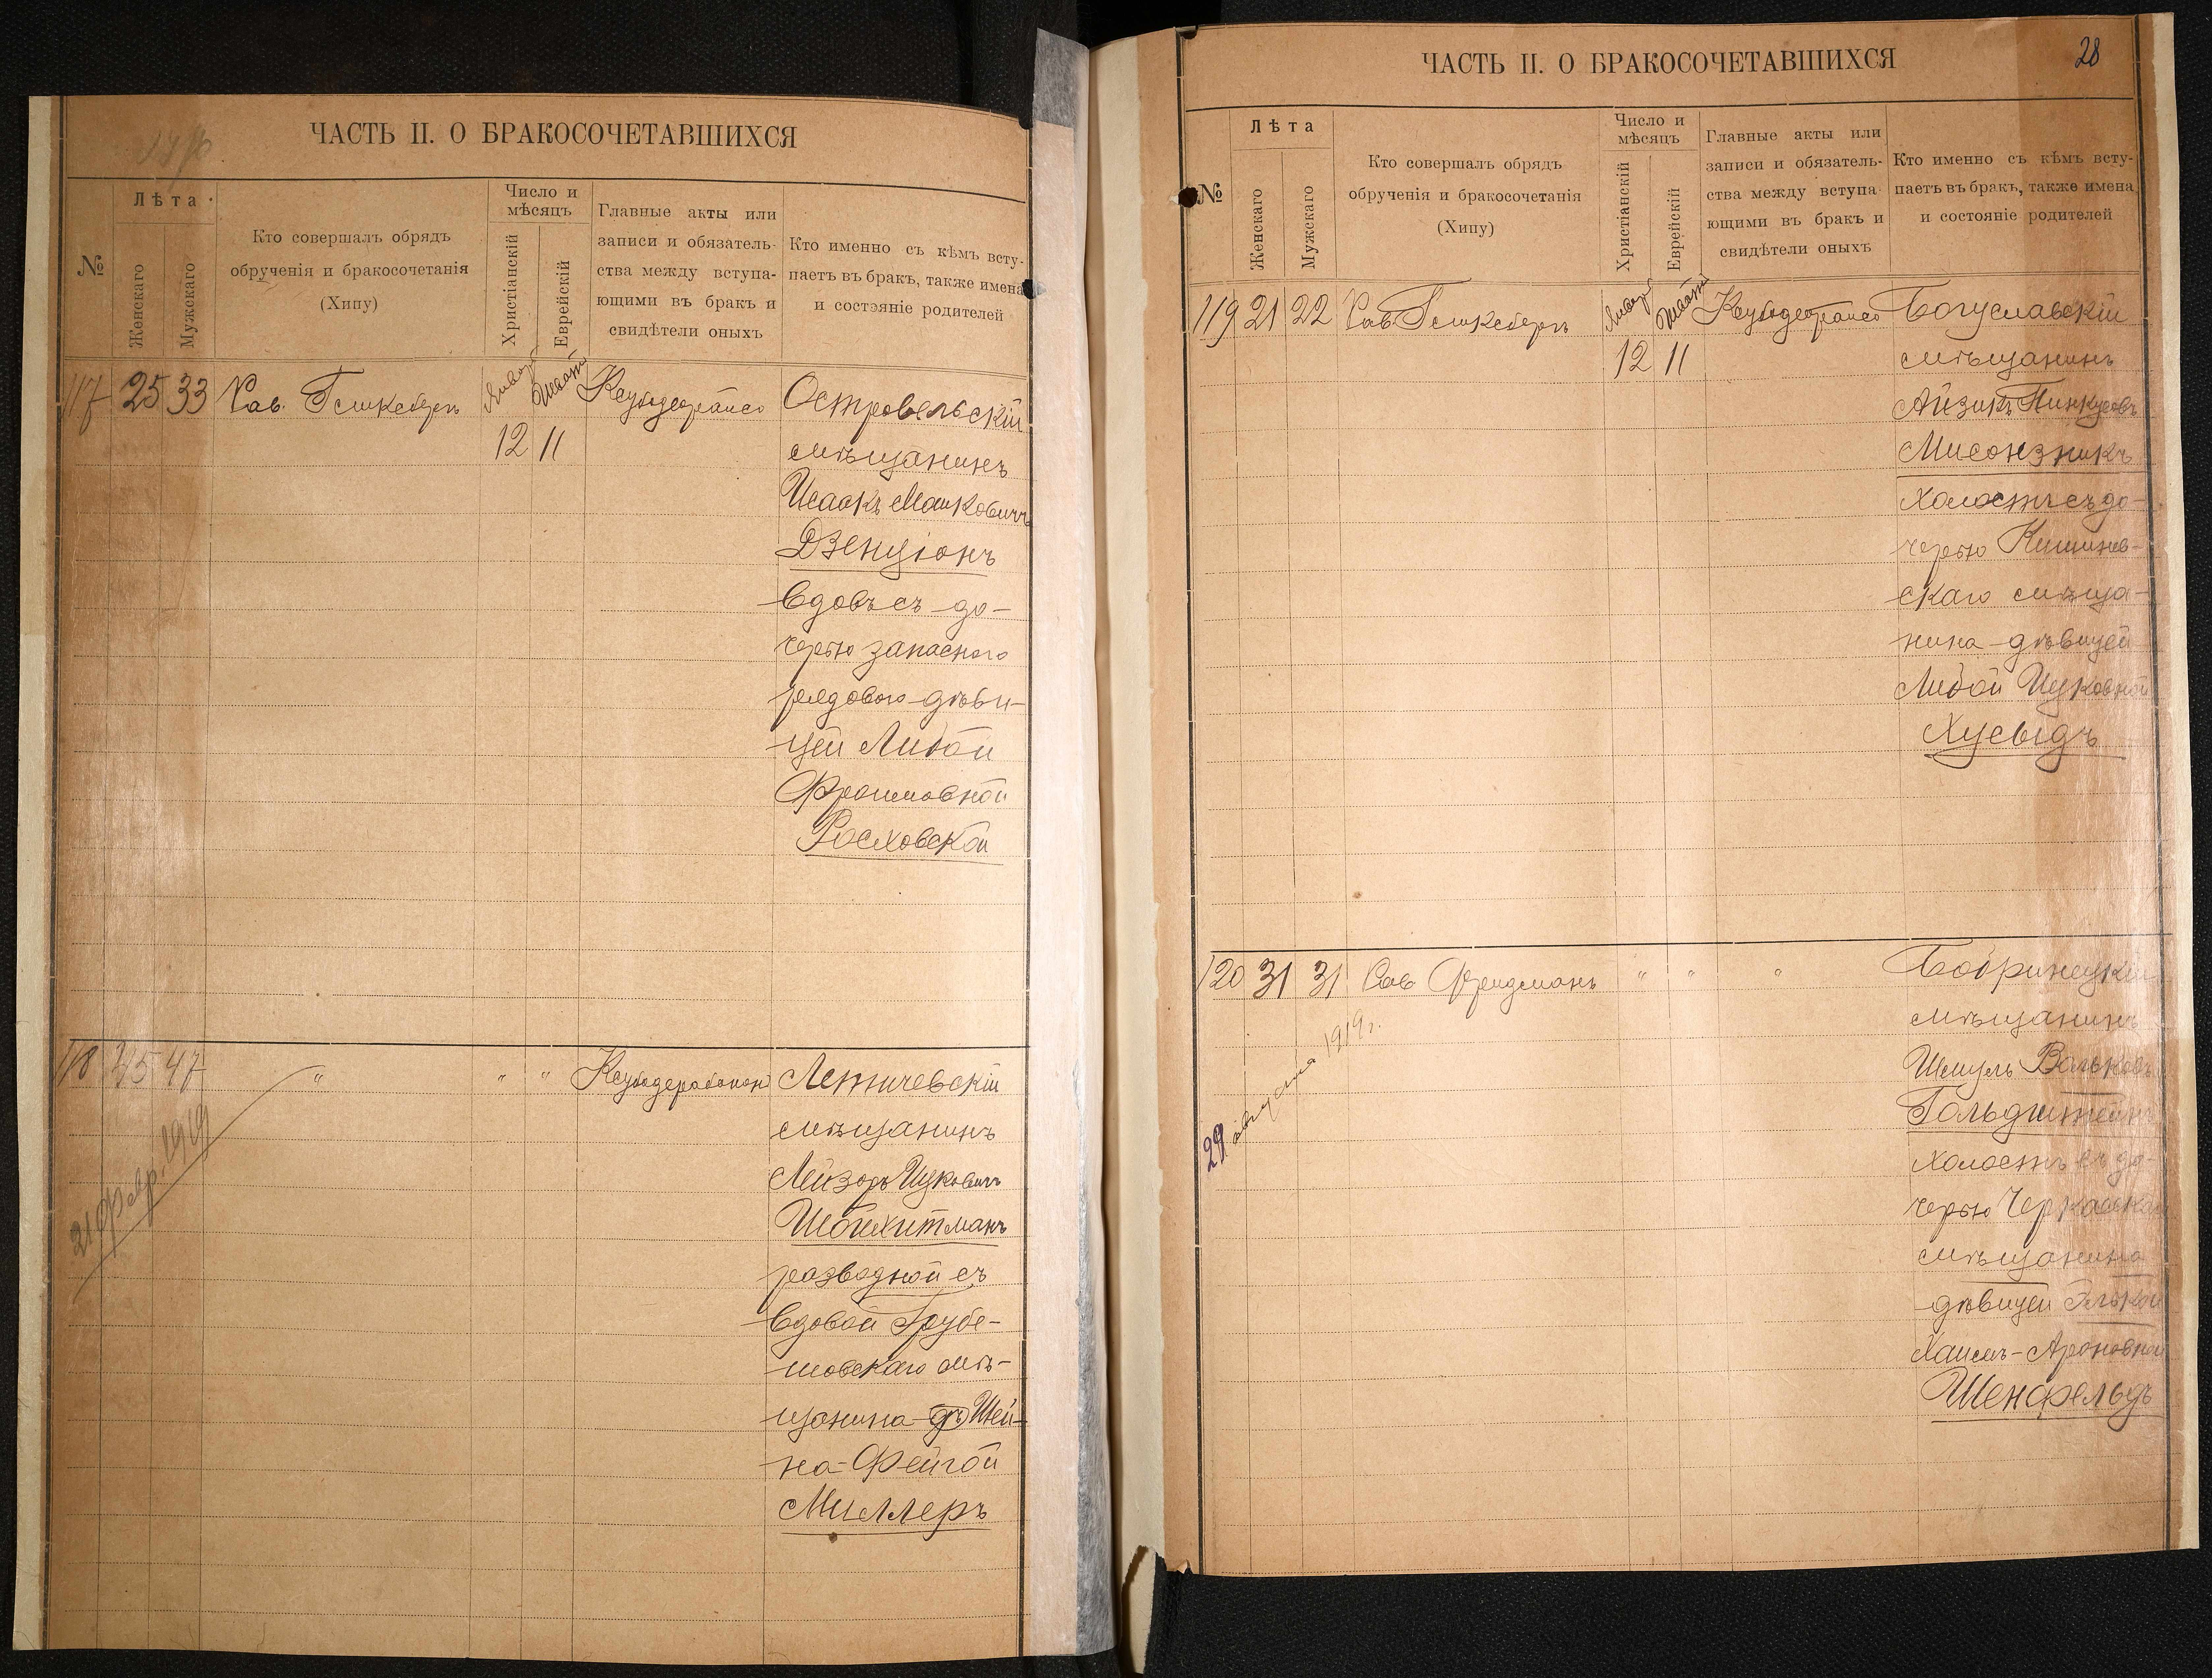 ЧАСТЬ II. О БРАКОСОЧЕТАВШИХСЯ
№
Лѣта
Женскаго
Мужскаго
Кто совершалъ обрядъ
обрученія и бракосочетанія
(Хипу)
Число и
мѣсяцъ
Христіанскій
Еврейскій
Главные акты или
записи и обязатель-
ства между вступа-
ющими въ бракъ и
свидѣтели оныхъ
Кто именно съ кѣмъ всту-
паетъ въ бракъ, также имена
и состояніе родителей
117 25 33 Рав.
12 11
мѣщанинъ
Исаакъ
Дзенціонъ
вдовъ съ до-
черью запасного
рядового дѣви-
цей Либой
Фроимовной
Росховской
118 45 47 " " " Летичевскій
мѣщанинъ
Лейзоръ Ицковичъ
Шойхитманъ
разводной съ
вдовой Грубе-
шовскаго мѣ-
щанина Шей-
на-Фейгой
Миллеръ
21 февр. 1919
ЧАСТЬ II. О БРАКОСОЧЕТАВШИХСЯ
28
№
Лѣта
Женскаго
Мужскаго
Кто совершалъ обрядъ
обрученія и бракосочетанія
(Хипу)
Число и
мѣсяцъ
Христіанскій
Еврейскій
Главные акты или
записи и обязатель-
ства между вступа-
ющими въ бракъ и
свидѣтели оныхъ
Кто именно съ кѣмъ всту-
паетъ въ бракъ, также имена
и состояніе родителей
119 21 22 Рав. Богуславскій
12 11 мѣщанинъ
Айзикъ Пинкусовъ
Мисонзникъ
холостъ съ до-
черью Кишинев-
скаго мѣща-
нина дѣвицей
Либой Ицковной
Хусыдъ
120 31 31 Рав Фридманъ " " " Бобринецкій
мѣщанинъ
Шмуль Вольковъ
Гольдштейнъ
холостъ съ до-
черью
мѣщанина
дѣвицей Элькой
Хаимъ-Ароновной
Шенфельдъ
29 августа 1919 г.